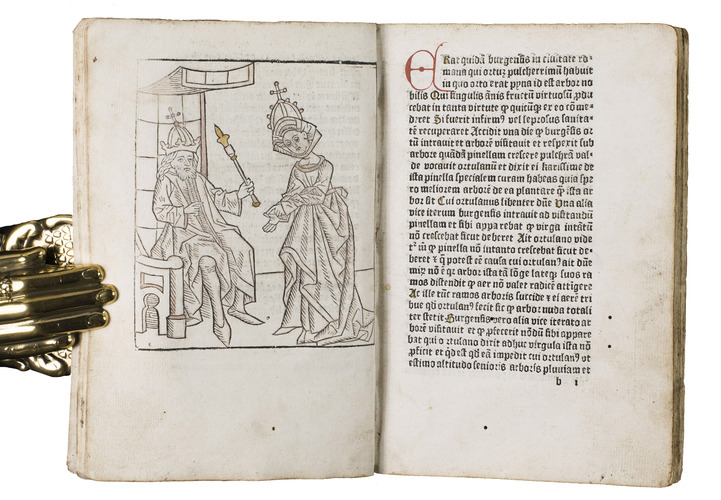 ERat quidā burgenſis in ciuitate ro⸗
mana qui ortuʒ pulcherrimū habuit
in quo orto erat pyna id eſt arbor no
bilis Qui ſingulis ānis fructū virtuoſū ꝓdu
cebat in tanta virtute ꝙ quicūqʒ ex eo cōme⸗
deret Si fuerit infirmꝰ vel leproſus ſanita
tē recuperaret Accidit vna die ꝙ burgēſis or
tū intrauit et arborē viſitauit et reſpexit ſub
arbore quādā pinellam creſcere pulchrā val⸗
de vocauit ortulanū et dixit ei kariſſime de
iſta pinella ſpecialem curam habeas quia ſpe
ro meliorem arborē de ea plantare ꝙ̄ iſta ar
bor ſit Cui ortulanus libenter dūe Vna alia
vice iterum burgenſis intrauit ad viſitandū
pinellam et ſibi apparebat ꝙ virga in tātū
nō creſcebat ſicut deberet Ait ortulano vide
tʳ m̄ ꝙ pinella nō intanto creſcebat ſicut de⸗
beret ⁊ q̄ poteſt eē cauſa cui ortulanꝰ ait dūe
mirꝰ nō ē qꝛ arbor iſta tā lōge lateqʒ ſuos ra
mos diſtendit ꝙ aer nō valet radicē attīgere
Ait ille tūc ramos arboris ſuccide ⁊ ei aerē tri
bue qͥ ortulanꝰ fecit ſic ꝙ arbor nuda totali
ter ſtetit Burgenſis vero alia vice iterato ar
borē viſitauit et ꝙ ꝓfecerit nōdū ſibi appare
bat qui o rtulano dixit adhuc virgula iſta nō
ꝓficit et qͥd eſt qd̄ eā impedit cui ortulanꝰ vt
eſtimo altitudo ſenioris arboris pluuiam et
b i